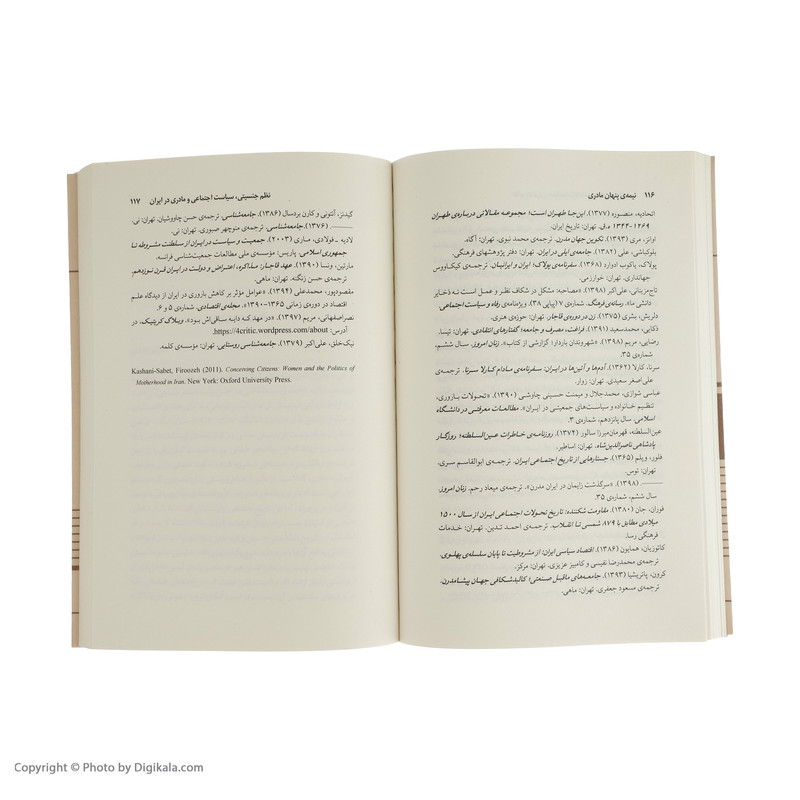 ۱۱۶ نیمه‌ی پنهان مادری
اتحادیه، منصوره (۱۳۷۷). این‌جا طهران است؛ مجموعه مقالاتی درباره‌ی طهران
۱۲۶۹-۱۳۴۴ ه.ق. تهران: تاریخ ایران.
اوانز، مری (۱۳۹۳). تکوین جهان مدرن. ترجمه‌ی محمد نبوی. تهران: آگاه.
بلوکباشی، علی (۱۳۸۲). جامعه‌ی ایلی در ایران. تهران: دفتر پژوهشهای فرهنگی.
پولاک، یاکوب ادوارد (۱۳۶۸). سفرنامه‌ی پولاک؛ ایران و ایرانیان. ترجمه‌ی کیکاووس
جهانداری. تهران: خوارزمی.
تاج‌مزینانی، علی‌اکبر (۱۳۹۸). «مصاحبه: مشکل در شکاف نظر و عمل است نه ذخایر
دانشی ما». رسانه‌ی فرهنگ. شماره‌ی ۷ (پیاپی ۳۸). ویژه‌نامه‌ی رفاه و سیاست اجتماعی.
دلریش، بشری (۱۳۷۵). زن در دوره‌ی قاجار. تهران: حوزه‌ی هنری.
ذکایی، محمدسعید (۱۳۹۱). فراغت، مصرف و جامعه؛ گفتارهای انتقادی. تهران: تیسا.
رضایی، مریم (۱۳۹۸). «شهروندان باردار؛ گزارشی از کتاب». زنان امروز. سال ششم،
شماره‌ی ۳۵.
سرنا، کارلا (۱۳۶۲). آدم‌ها و آئین‌ها در ایران: سفرنامه‌ی مادام کارلا سرنا. ترجمه‌ی
علی‌اصغر سعیدی. تهران: زوار.
عباسی شوازی، محمدجلال و میمنت حسینی چاوشی (۱۳۹۰). «تحولات باروری،
تنظیم خانواده و سیاست‌های جمعیتی در ایران». مطالعات معرفتی در دانشگاه
اسلامی. سال پانزدهم، شماره‌ی ۳.
عین‌السلطنه، قهرمان‌میرزا سالور (۱۳۷۴). روزنامه‌ی خاطرات عین‌السلطنه؛ روزگار
پادشاهی ناصرالدین‌شاه. تهران: اساطیر.
فلور، ویلم (۱۳۶۵). جستارهایی از تاریخ اجتماعی ایران. ترجمه‌ی ابوالقاسم سری.
تهران: توس.
ـــــــــ (۱۳۹۸). «سرگذشت زایمان در ایران مدرن». ترجمه‌ی میعاد رحم. زنان امروز.
سال ششم، شماره‌ی ۳۵.
فوران، جان (۱۳۸۰). مقاومت شکننده: تاریخ تحولات اجتماعی ایران از سال ۱۵۰۰
میلادی مطابق با ۸۷۹ شمسی تا انقلاب. ترجمه‌ی احمد تدین. تهران: خدمات
فرهنگی رسا.
کاتوزیان، همایون (۱۳۸۶). اقتصاد سیاسی ایران؛ از مشروطیت تا پایان سلسله‌ی پهلوی.
ترجمه‌ی محمدرضا نفیسی و کامبیز عزیزی. تهران: مرکز.
کرون، پاتریشیا (۱۳۹۳). جامعه‌های ماقبل صنعتی؛ کالبدشکافی جهان پیشامدرن.
ترجمه‌ی مسعود جعفری. تهران: ماهی.
نظم جنسیتی، سیاست اجتماعی و مادری در ایران ۱۱۷
گیدنز، آنتونی و کارن بردسال (۱۳۸۶). جامعه‌شناسی. ترجمه‌ی حسن چاوشیان. تهران: نی.
ـــــــــ (۱۳۷۶). جامعه‌شناسی. ترجمه‌ی منوچهر صبوری. تهران: نی.
لادیه ـ فولادی، ماری (۲۰۰۳). جمعیت و سیاست در ایران از سلطنت مشروطه تا
جمهوری اسلامی. پاریس: مؤسسه‌ی ملی مطالعات جمعیت‌شناسی فرانسه.
مارتین، ونسا (۱۳۹۰). عهد قاجار: مذاکره، اعتراض و دولت در ایران قرن نوزدهم.
ترجمه‌ی حسن زنگنه. تهران: ماهی.
مقصودپور، محمدعلی (۱۳۹۴). «عوامل مؤثر بر کاهش باروری در ایران از دیدگاه علم
اقتصاد در دوره‌ی زمانی ۱۳۶۵-۱۳۹۰». مجله‌ی اقتصادی. شماره‌ی ۵ و ۶.
نصراصفهانی، مریم (۱۳۹۷). «در مهد که دایه ساقی‌اش بود». وبلاگ کریتیک، در
آدرس: https://4critic.wordpress.com/about.
نیک‌خلق، علی‌اکبر (۱۳۷۹). جامعه‌شناسی روستایی. تهران: مؤسسه‌ی کلمه.
Kashani-Sabet, Firoozeh (2011). Conceiving Citizens: Women and the Politics of
Motherhood in Iran. New York: Oxford University Press.
Copyright © Photo by Digikala.com